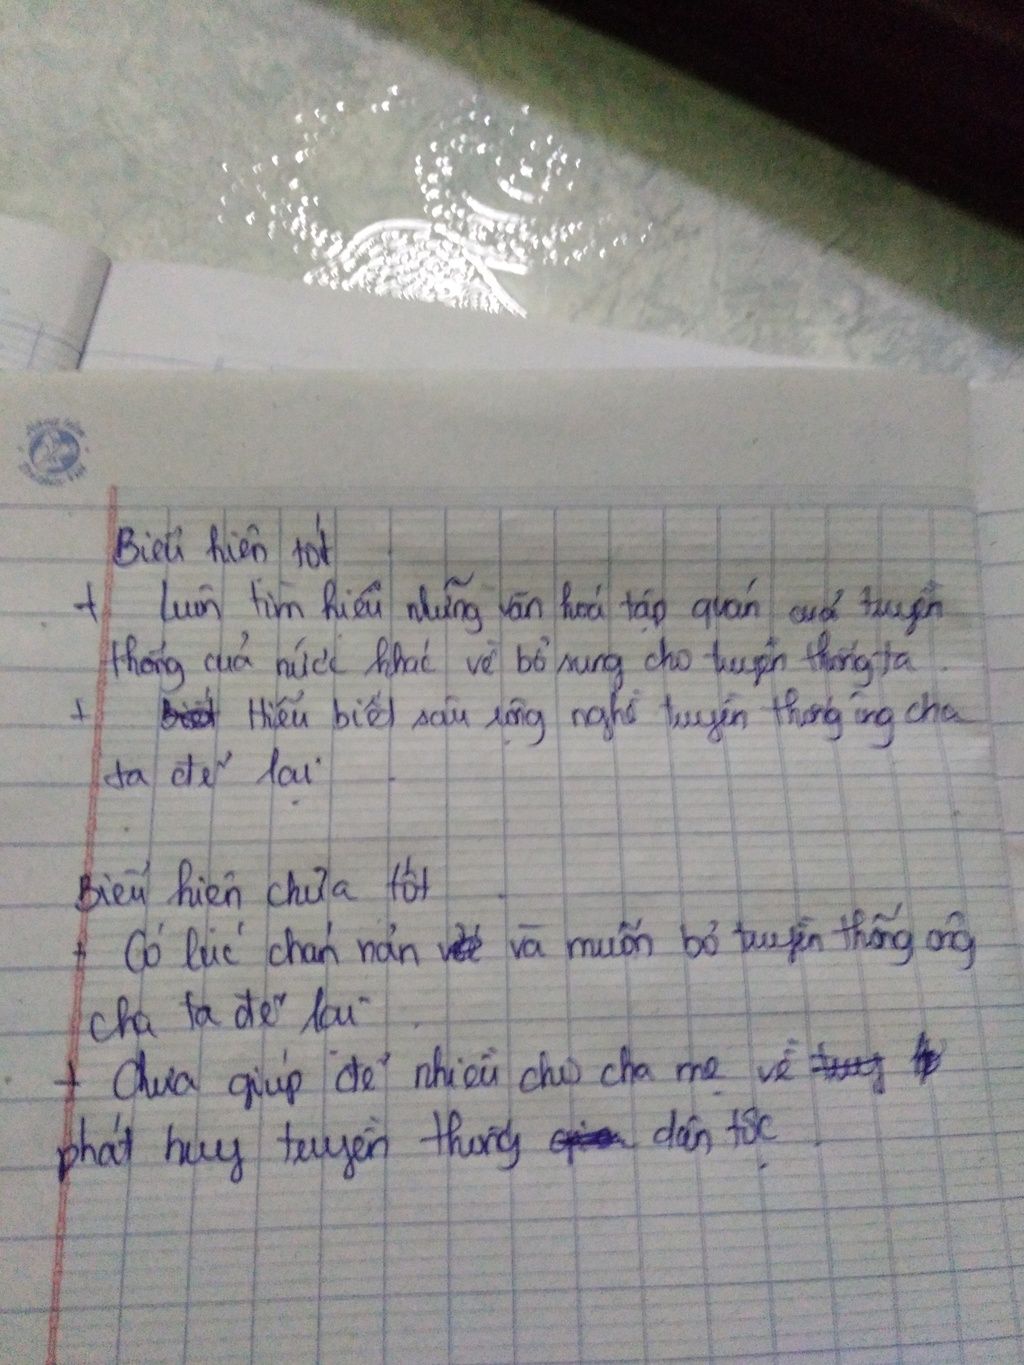 Biểu hiên tốt
+ Luôn tìm hiểu những văn hoá tập quán quá truyền
thống cuả nước khác về bổ sung cho truyền thống ta.
+ Hiểu biết sâu rộng nghề truyền thống ông cha
ta để lại.
Biểu hiên chưa tốt
+ Có lúc chán nản và muốn bỏ truyền thống ông
cha ta để lại.
+ Chưa giúp để nhiều cho cha mẹ về
phát huy truyền thống dân tộc.